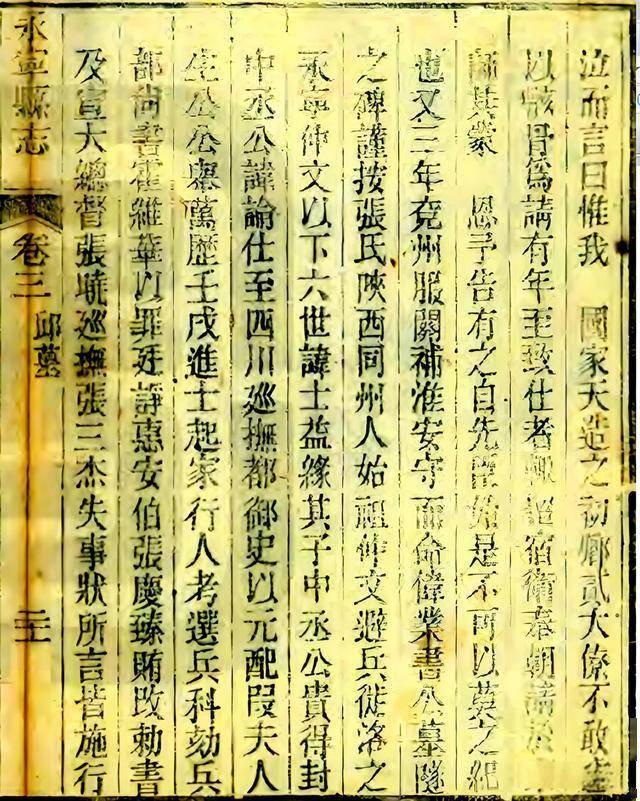 泣而言曰惟我 國家天造之初卿貳大僚不敢遽
以骸骨爲請有年至致仕者輒詔宿衞奉朝請
師其蒙 恩予告有之自先臣始是不可以莫之紀
也又三年兗州服闋補淮安守而命偉業書公墓隧
之碑謹按張氏陝西同州人始祖仲文避兵徙洛之
永寧仲文以下六世諱士益緣其子中丞公貴得封
中丞公諱論仕至四川廵撫都御史以元配段夫人
生公公舉萬歷壬戌進士起家行人考選兵科劾兵
部尚書霍維華以罪廷諍惠安伯張慶臻賄改勅書
及宣大總督張曉廵撫張三杰失事狀所言皆施行
永寧縣志 卷三 邱墓